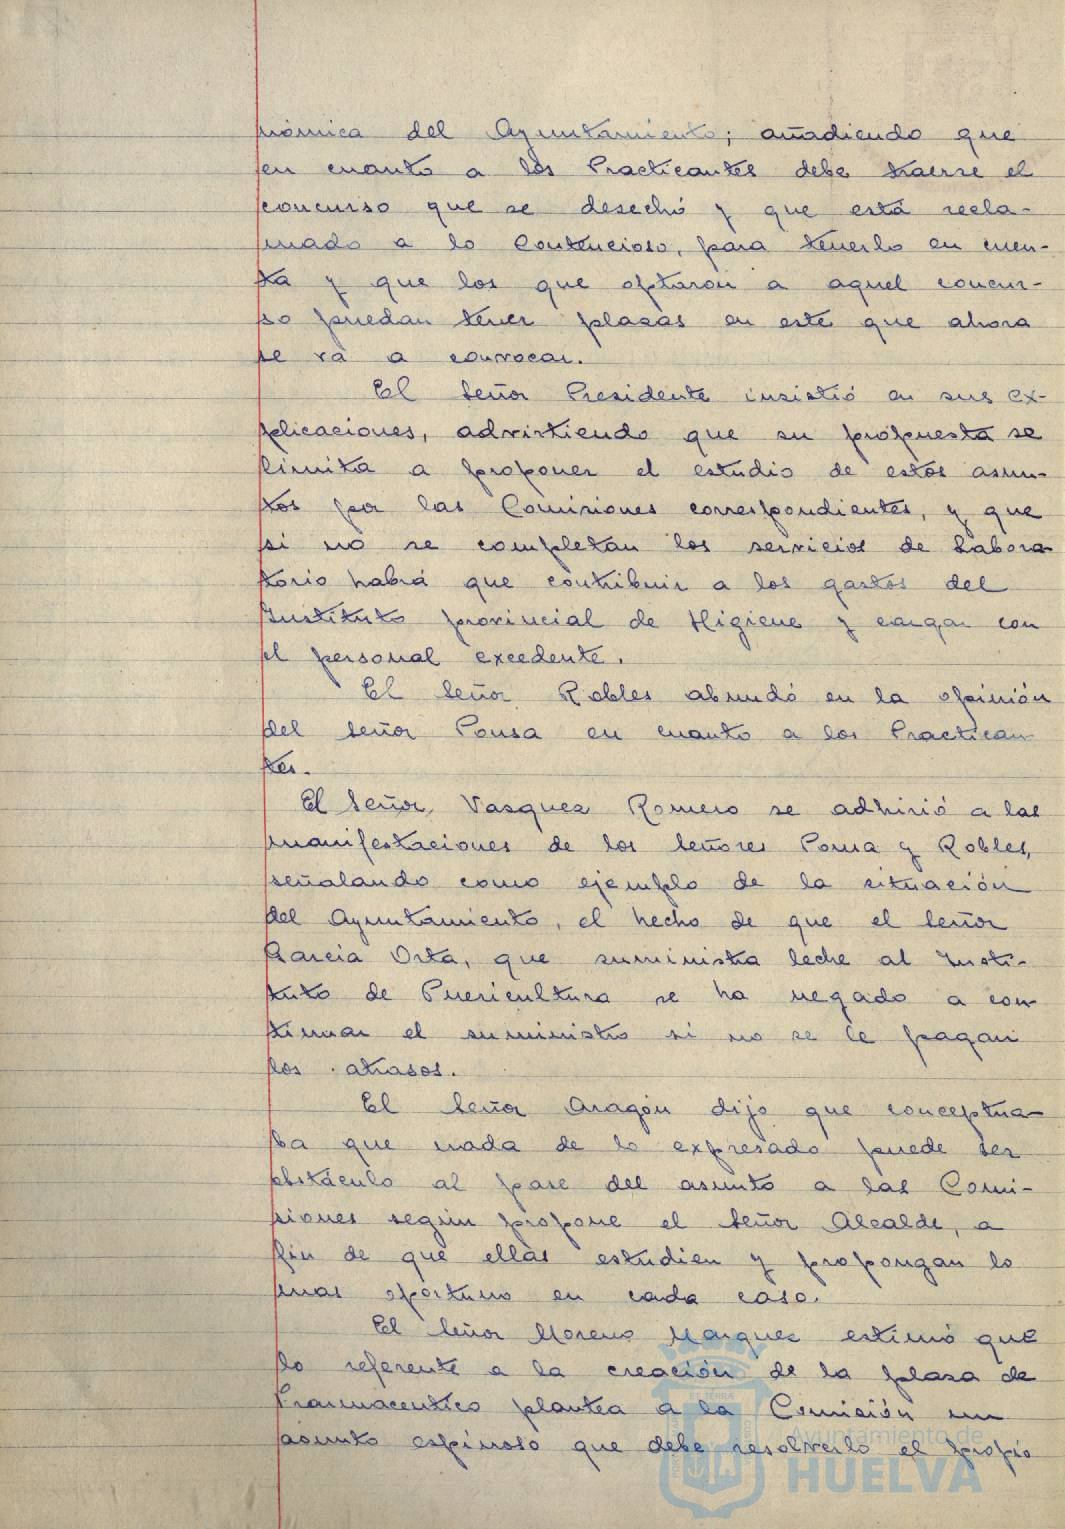 nómica del Ayuntamiento; añadiendo que
en cuanto a los Practicantes debe traerse el
concurso que se desechó y que está recla-
mado a lo Contencioso, para tenerlo en cuen-
ta y que los que optaron a aquel concur-
so puedan tener plazas en este que ahora
se va a convocar.
El Señor Presidente insistió en sus ex-
plicaciones, advirtiendo que su propuesta se
limita a proponer el estudio de estos asun-
tos por las Comisiones correspondientes, y que
si no se completan los servicios de Labora-
torio habrá que contribuir a los gastos del
Instituto provincial de Higiene y cargar con
el personal excedente.
El Señor Robles abundó en la opinión
del Señor Pousa en cuanto a los Practican
tes.
El Señor Vasquez Romero se adhirió a las
manifestaciones de los Señores Pousa y Robles,
señalando como ejemplo de la situación
del Ayuntamiento, el hecho de que el Señor
Garcia Orta, que suministra leche al Insti-
tuto de Puericultura se ha negado a con
tinuar el suministro si no se le pagan
los atrasos.
El Señor Aragón dijo que conceptua-
ba que nada de lo expresado puede ser
obstáculo al pase del asunto a las Comi-
siones según propone el Señor Alcalde, a
fin de que ellas estudien y propongan lo
mas oportuno en cada caso.
El Señor Moreno Marquez estimó que
lo referente a la creación de la plaza de
Farmaceutico plantea a la Comisión un
asunto espinoso que debe resolverlo el propio
Ayuntamiento de
HUELVA